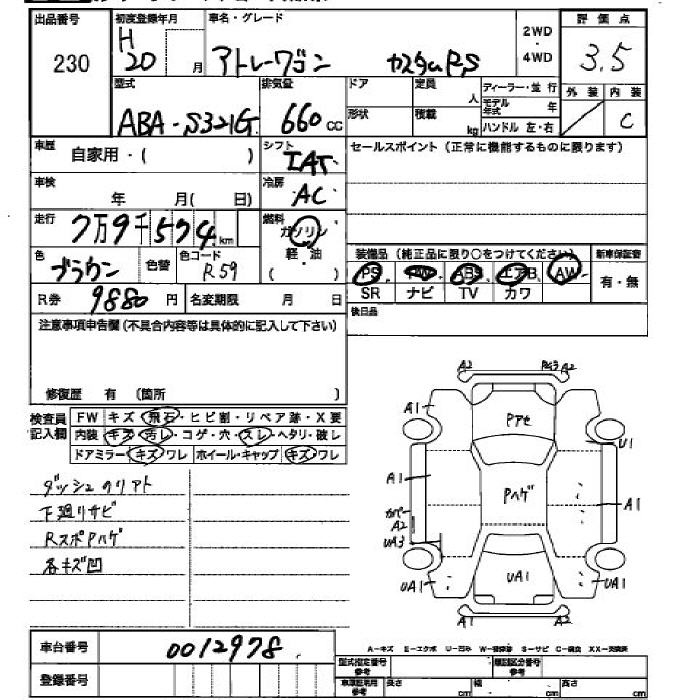 出品番号 初度登録年月 車名・グレード 2WD・4WD 評価点
230 H20 月 アトレーワゴン カスタムRS 3.5
型式 排気量 ドア 定員 人 ディーラー・並行 外装 内装
ABA-S321G 660cc 形状 積載 kg モデル年式 年 C
ハンドル 左・右
車歴 自家用・( ) シフト IAT セールスポイント(正常に機能するものに限ります)
車検 年 月( 日) 冷房 AC
走行 7万9千574km 燃料 ガソリン
軽・油
( )
色 ブラウン 色替 色コード R59
装備品(純正品に限り○をつけてください) 新車保証書
PS PW ABS エアB AW 有・無
SR ナビ TV カワ
R券 9880円 名変期限 月 日 後日品
注意事項申告欄(不具合内容等は具体的に記入して下さい)
修復歴 有 (箇所 )
検査員記入欄 FW キズ・飛石・ヒビ割・リペア跡・X要
内装 キズ・汚レ・コゲ・穴・スレ・ヘタリ・破レ
ドアミラー キズ・ワレ ホイール・キャップ キズ・ワレ
ダッシュクリアト
下廻りサビ
RスポPハゲ
各キズ凹
A2 A2
A1 Pアセ
U1
A1 Pハゲ A1
カバー
A2
UA3
UA1 UA1 UA1
A1 A2
車台番号 0012978
A-キズ E-エクボ U-凹み S-サビ
登録番号 型式指定番号 参考 類別区分番号 参考
長さ cm 幅 cm 高さ cm